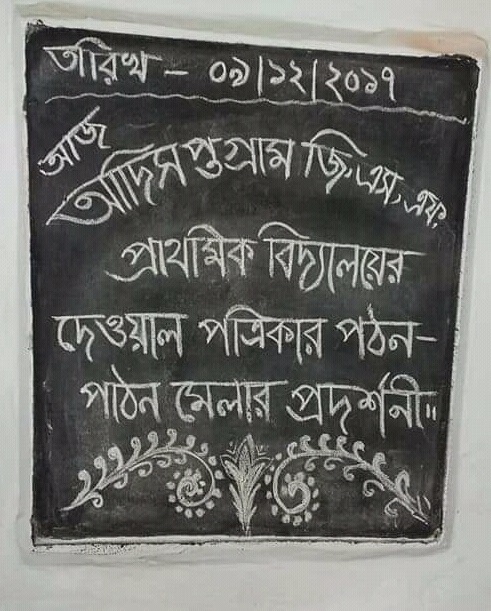 তারিখ – ০৯|১২|২০১৭
আজ
আদিসপ্তগ্রাম জি, এস, এফ,
প্রাথমিক বিদ্যালয়ের
দেওয়াল পত্রিকার পঠন-
পাঠন মেলার প্রদর্শনী॥